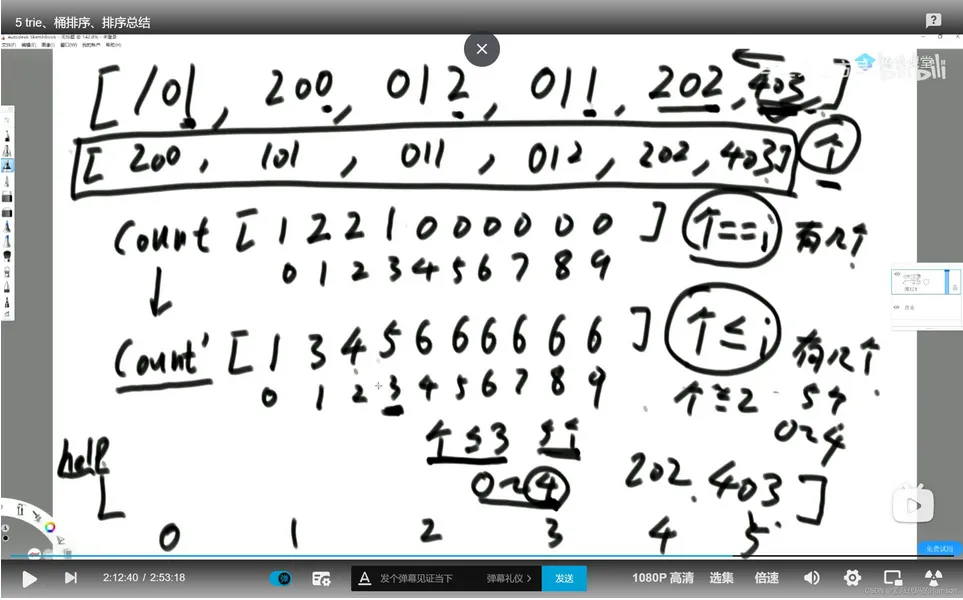 5 trie、桶排序、排序总结
[101, 200, 012, 011, 202, 403,]
[200, 101, 011, 012, 202, 403] 个
Count [1 2 2 1 0 0 0 0 0 0] 个==i 有几个
0 1 2 3 4 5 6 7 8 9
Count' [1 3 4 5 6 6 6 6 6 6] 个≤i 有几个
0 1 2 3 4 5 6 7 8 9
个≤2 5个
个≤3 5个 0~4
0~4
help [ 202. 403 ]
0 1 2 3 4 5
免费试用
2:12:40 / 2:53:18
弹
发个弹幕见证当下
弹幕礼仪 >
发送
1080P 高清
选集
倍速